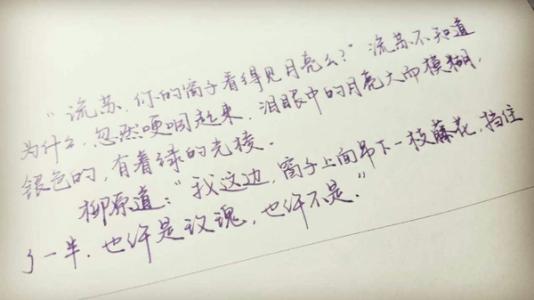 “流苏,你的窗子看得见月亮么?”流苏不知道
为什么,忽然哽咽起来.泪眼中的月亮大而模糊.
银色的,有着绿的光棱.
柳原道:“我这边,窗子上面吊下一枝藤花,挡住
了一半.也许是玫瑰,也许不是.”